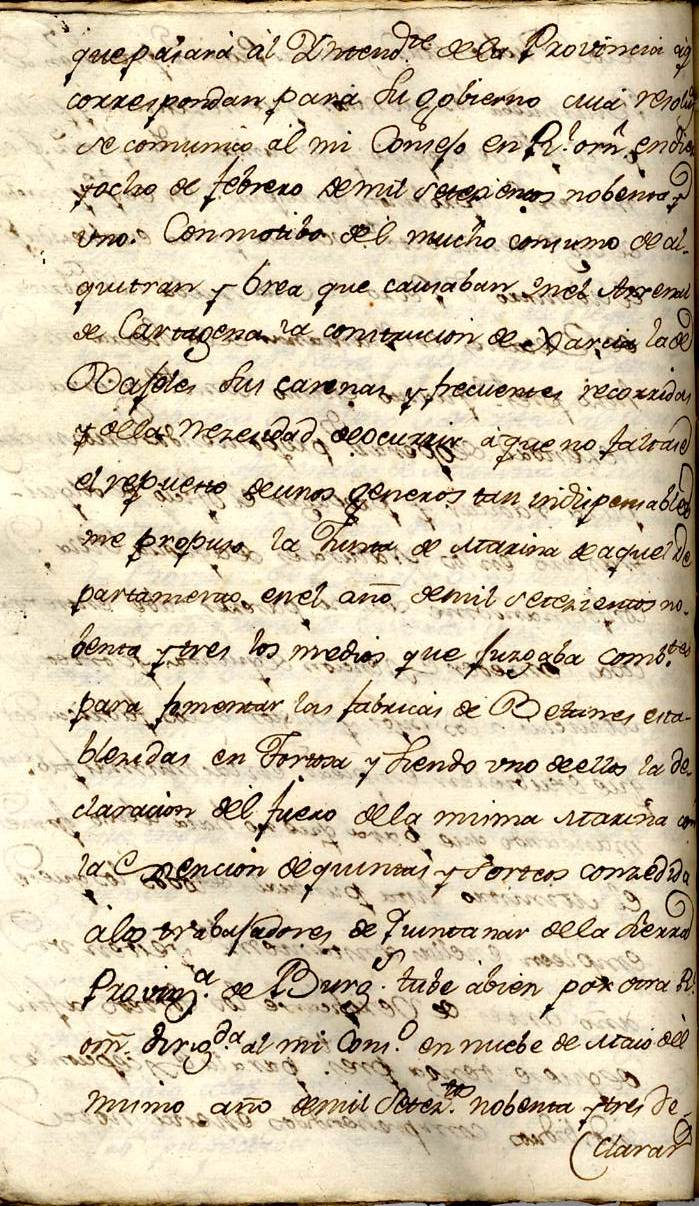 que pasará al Yntend.te de la Provincia 
correspondan para su gobierno cuia resolu
se comunicó al mi Consejo en R.l orn. en diez
y ocho de febrero de mil setezientos nobenta y
uno. Con motibo del mucho consumo de al-
quitran y brea que causaban en el Arsenal
de Cartagena la construcion de Xarcia la de
Bajeles sus carenas y frecuentes recorridas
y de la nezesidad de ocurrir á que no faltase
el repuesto de unos generos tan indispensables
me propuso la Junta de Marina de aquel De
partamento en el año de mil setezientos no-
benta y tres los medios que juzgaba comb.tes
para fomentar las fabricas de Betunes esta-
blezidas en Tortosa y siendo uno de ellos la de-
claracion del fuero de la misma Marina con
la Esencion de quintas y sorteos conzedida
á los trabajadores de Quintanar de la sierra
Provinz.a de Burg.s tube á bien por otra R.l
orn. dirig.da al mi Cons.o en nuebe de Maio del
mismo año de mil setez.tos nobenta y tres de-
clarar